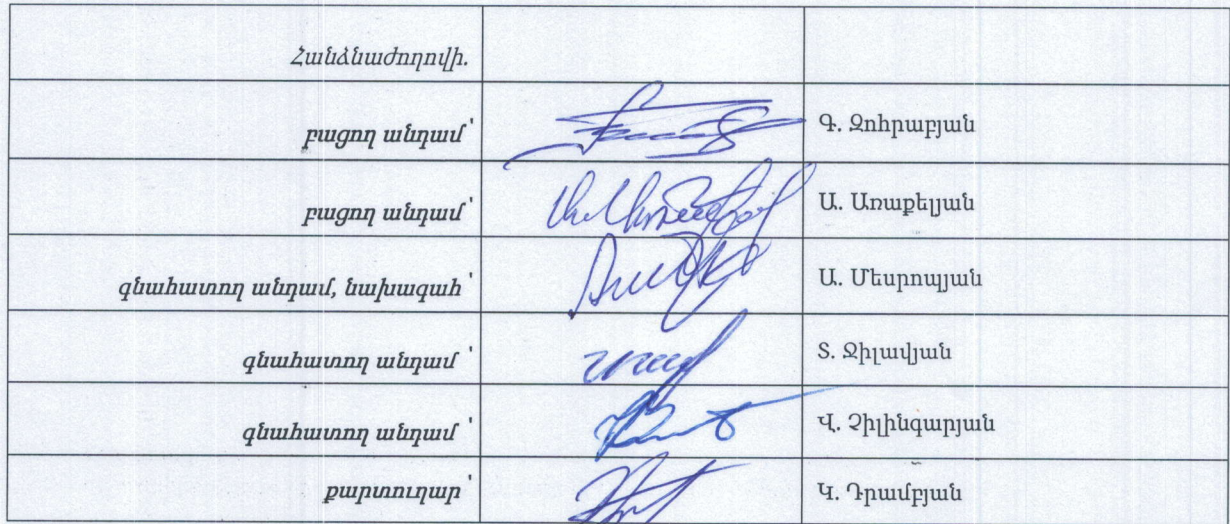 Հանձնաժողովի.
բացող անդամ՝ Գ. Զոհրաբյան
բացող անդամ՝ Ա. Առաքելյան
գնահատող անդամ, նախագահ՝ Ա. Մեսրոպյան
գնահատող անդամ ՝ Տ. Ջիլավյան
գնահատող անդամ ՝ Վ. Չիլինգարյան
քարտուղար՝ Կ. Դրամբյան